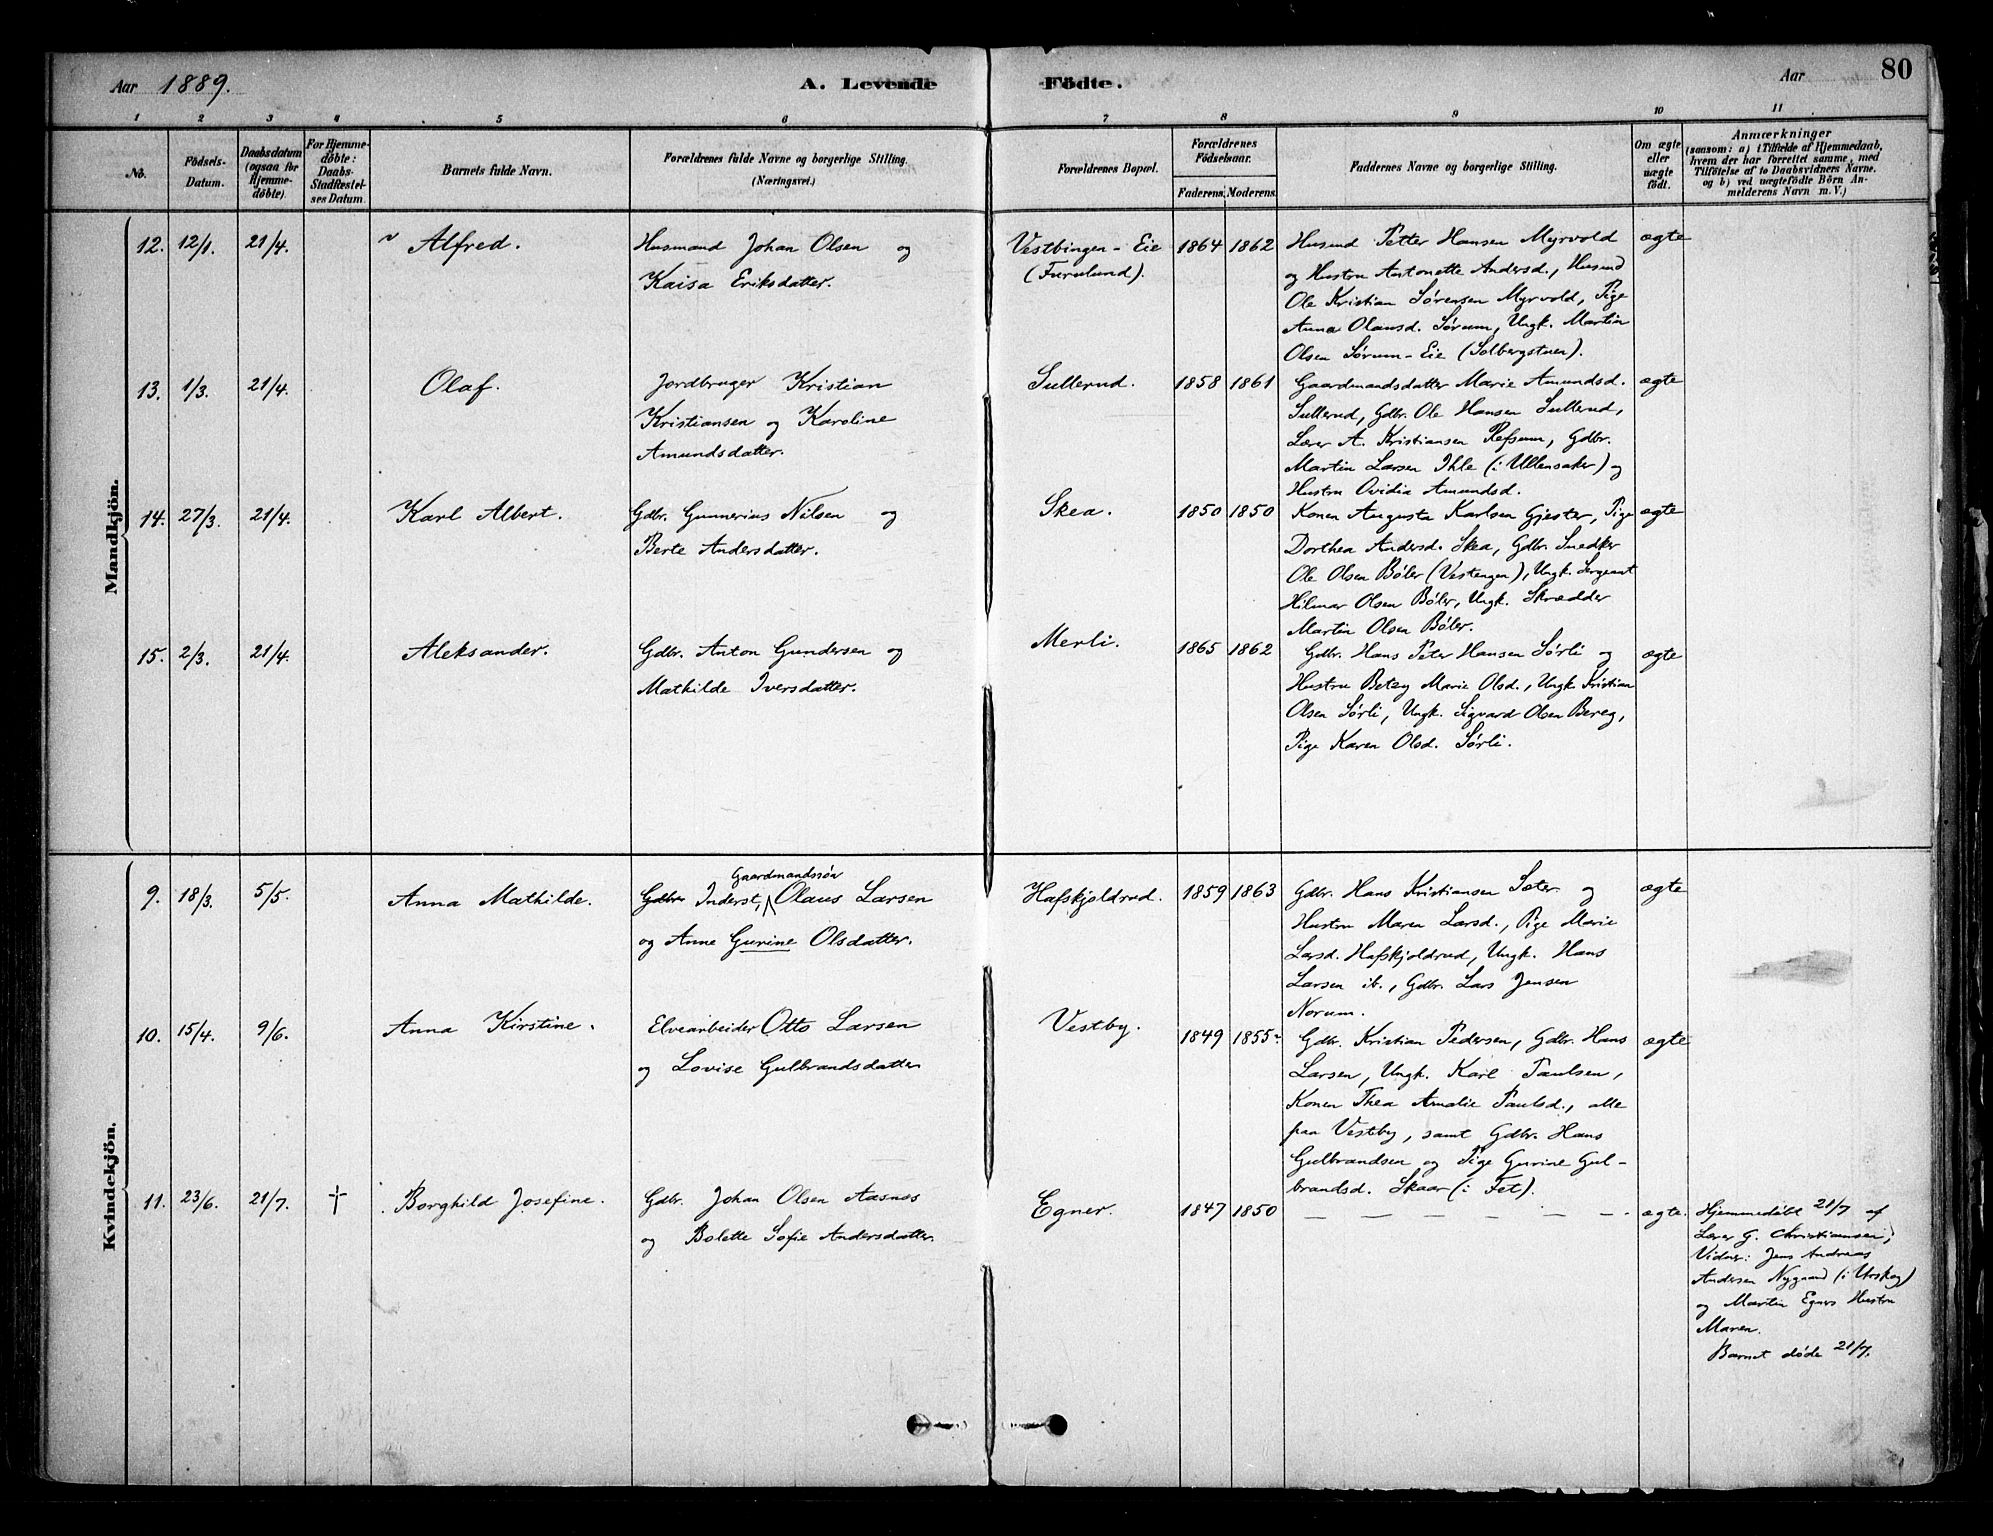 Aar 1889.
A. Levende
Födte.
Aar
80
1 2 3 4 5 6 7 8 9 10 11
No.
Födsels-
Datum.
Daabsdatum
(ogsaa for
Hjemme-
döbte)
For Hjemme-
döbte:
Daabs-
Stadfæstel-
ses Datum.
Barnets fulde Navn.
Forældrenes fulde Navne og borgerlige Stilling.
(Næringsvei.)
Forældrenes Bopæl.
Forældrenes
Födselsaar.
Faderens. Moderens.
Faddernes Navne og borgerlige Stilling.
Om ægte
eller
uægte
födt.
Anmærkninger
(saasom: a) i Tilfælde af Hjemmedaab,
hvem der har forrettet samme, med
Tilföielse af to Daabsvidners Navne.
og b) ved uægtefödte Börn An-
melderens Navn m. V.)
Mandkjön.
12. 12/1. 21/4. Alfred.
Husmand Johan Olsen og
Kaisa Eriksdatter.
Vestbingen-Eie
(Furulund).
1864 1862
Husmd Petter Hansen Myrvold
og Hustru Antonette Andersd., Husmd
Ole Kristian Sørensen Myrvold, Pige
Anna Olausd. Sørum, Ungk. Martin
Olsen Sørum-Eie (Solbergstuen).
ægte
13. 1/3. 21/4. Olaf.
Jordbruger Kristian
Kristiansen og Karoline
Amundsdatter.
Sullerud.
1858 1861
Gaardmandsdatter Marie Amundsd.
Sullerud, Gdbr. Ole Hansen Sullerud,
Lærer A. Kristiansen Refsum, Gdbr.
Martin Larsen Ihle (i Ullensaker) og
Hustru Ovidia Amundsd.
ægte
14. 27/3. 21/4. Karl Albert.
Gdbr. Gunnerius Nilsen og
Berte Andersdatter.
Skea.
1850 1850
Konen Augusta Karlsen Gjester, Pige
Dorthea Andersd. Skea, Gdbr. Snedker
Ole Olsen Bøler (Vestengen), Ungk. Sergeant
Hilmar Olsen Bøler, Ungk. Skrædder
Martin Olsen Bøler.
ægte
15. 2/3. 21/4. Aleksander.
Gdbr. Anton Gundersen og
Mathilde Iversdatter.
Merli.
1865 1862
Gdbr. Hans Peter Hansen Sørli og
Hustru Betzy Marie Olsd., Ungk. Kristian
Olsen Sørli, Ungk. Sigvard Olsen Bereg,
Pige Karen Olsd. Sørli.
ægte
Kvindekjön.
9. 18/3. 5/5. Anna Mathilde.
Gaardmandssøn
Gdbr Inderst, Olaus Larsen
og Anne Gurine Olsdatter.
Hafskjoldrud.
1859 1863
Gdbr. Hans Kristiansen Sæter og
Hustru Maren Larsd., Pige Marie
Larsd. Hafskjoldrud, Ungk. Hans
Larsen ib., Gdbr. Lars Jensen
Norum.
ægte
10. 15/4. 9/6. Anna Kirstine.
Elvearbeider Otto Larsen
og Lovise Gulbrandsdatter
Vestby.
1849 1855
Gdbr. Kristian Pedersen, Gdbr. Hans
Larsen, Ungk. Karl Paulsen,
Konen Thea Amalie Paulsd., alle
paa Vestby, samt Gdbr. Hans
Gulbrandsen og Pige Gurine Gul-
brandsd. Skaar (i Fet).
ægte
11. 23/6. 21/7. † Borghild Josefine.
Gdbr. Johan Olsen Aasnes
og Bolette Sofie Andersdatter.
Egner.
1847 1850
— — — — — —
ægte.
Hjemmedøbt 21/7 af
Lærer G. Christiansen;
Vidner: Jens Andreas
Andersen Nygaard (i Urskog)
og Martin Egners Hustru
Maren.
Barnet døde 21/7.